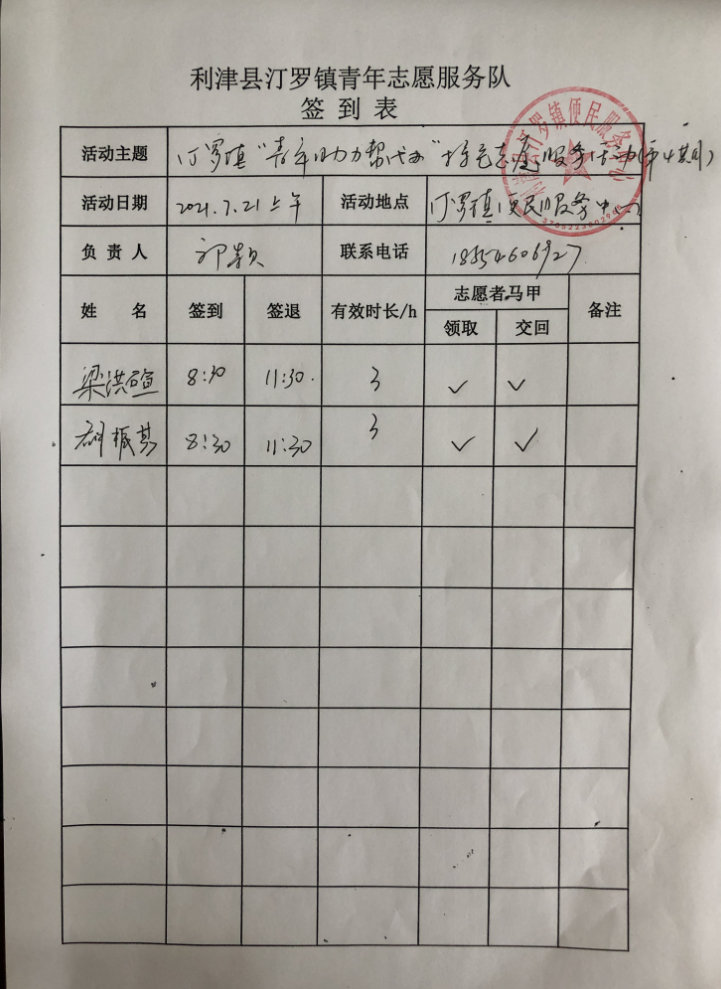 利津县汀罗镇青年志愿服务队
签到表
活动主题 汀罗镇“青年助力帮代办”培完志愿服务活动(第4期)
活动日期 2021.7.21上午 活动地点 汀罗镇便民服务中心
负责人 祁颖 联系电话 18854606927
姓名 签到 签退 有效时长/h 志愿者马甲 备注
领取 交回
梁洪 8:30 11:30. 3 ✓ ✓
振 8:30 11:30 3 ✓ ✓
汀罗镇便民服务中心